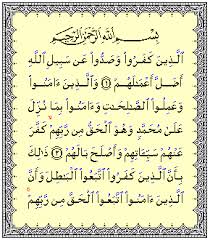 بِسْمِ ٱللَّهِ ٱلرَّحْمَٰنِ ٱلرَّحِيمِ
ٱلَّذِينَ كَفَرُوا۟ وَصَدُّوا۟ عَن سَبِيلِ ٱللَّهِ
أَضَلَّ أَعْمَٰلَهُمْ ۝١ وَٱلَّذِينَ ءَامَنُوا۟
وَعَمِلُوا۟ ٱلصَّٰلِحَٰتِ وَءَامَنُوا۟ بِمَا نُزِّلَ
عَلَىٰ مُحَمَّدٍ وَهُوَ ٱلْحَقُّ مِن رَّبِّهِمْ ۙ كَفَّرَ
عَنْهُمْ سَيِّـَٔاتِهِمْ وَأَصْلَحَ بَالَهُمْ ۝٢ ذَٰلِكَ
بِأَنَّ ٱلَّذِينَ كَفَرُوا۟ ٱتَّبَعُوا۟ ٱلْبَٰطِلَ وَأَنَّ
ٱلَّذِينَ ءَامَنُوا۟ ٱتَّبَعُوا۟ ٱلْحَقَّ مِن رَّبِّهِمْ ۚ